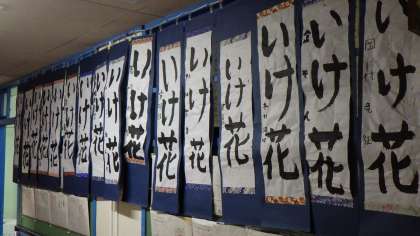 いけ花
いけ花
いけ花
いけ花
いけ花
いけ花
いけ花
いけ花
いけ花
いけ花
いけ花
いけ花
いけ花
いけ花